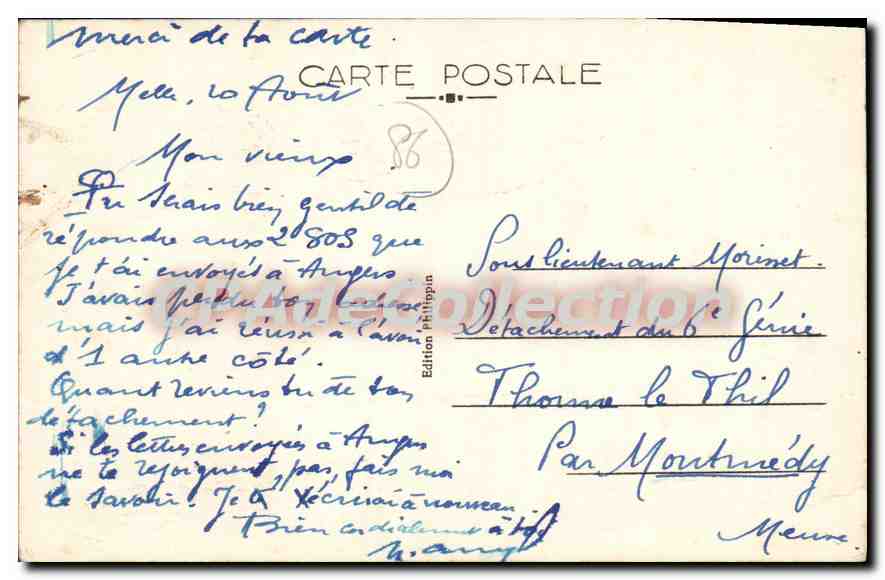 merci de ta carte.
CARTE POSTALE
Melle, 20 Août
86
Mon vieux
Tu serais bien gentil de
répondre aux 2 SOS que
je t'ai envoyés à Angers
J'avais perdu ton adresse
mais j'ai réussi à l'avoir
d'1 autre côté.
Quant reviens tu de ton
détachement?
Si les lettres envoyées à Angers
ne te rejoignent pas, fais moi
le savoir. Je t'écrirai à nouveau
Bien cordialement à toi
Edition Philippin
Sous lieutenant Morisset.
Détachement du 6e Génie
Thonne le Thil
Par Montmédy
Meuse
CPAdeCollection